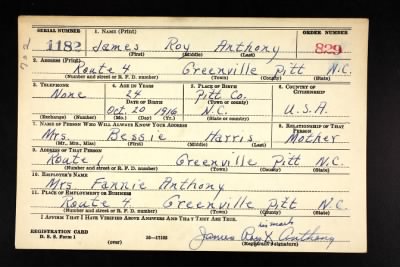 SERIAL NUMBER 1. NAME (Print) ORDER NUMBER
1182 James Roy Anthony 829
(First) (Middle) (Last)
2. ADDRESS (Print)
Route 4 Greenville Pitt N.C.
(Number and street or R. F. D. number) (Town) (County) (State)
3. TELEPHONE 4. AGE IN YEARS 5. PLACE OF BIRTH 6. COUNTRY OF CITIZENSHIP
None 24 Pitt Co.
DATE OF BIRTH (Town or county)
Oct 20 1916 N.C. U.S.A.
(Exchange) (Number) (Mo.) (Day) (Yr.) (State or country)
7. NAME OF PERSON WHO WILL ALWAYS KNOW YOUR ADDRESS 8. RELATIONSHIP OF THAT PERSON
Mrs. Bessie Harris Mother
(Mr., Mrs., Miss) (First) (Middle) (Last)
9. ADDRESS OF THAT PERSON
Route 1 Greenville Pitt N.C.
(Number and street or R. F. D. number) (Town) (County) (State)
10. EMPLOYER'S NAME
Mrs Fannie Anthony
11. PLACE OF EMPLOYMENT OR BUSINESS
Route 4. Greenville Pitt N.C.
(Number and street or R. F. D. number) (Town) (County) (State)
I AFFIRM THAT I HAVE VERIFIED ABOVE ANSWERS AND THAT THEY ARE TRUE.
his mark
REGISTRATION CARD James Roy X Anthony
D. S. S. Form 1 (over) 16-17105 (Registrant's signature)